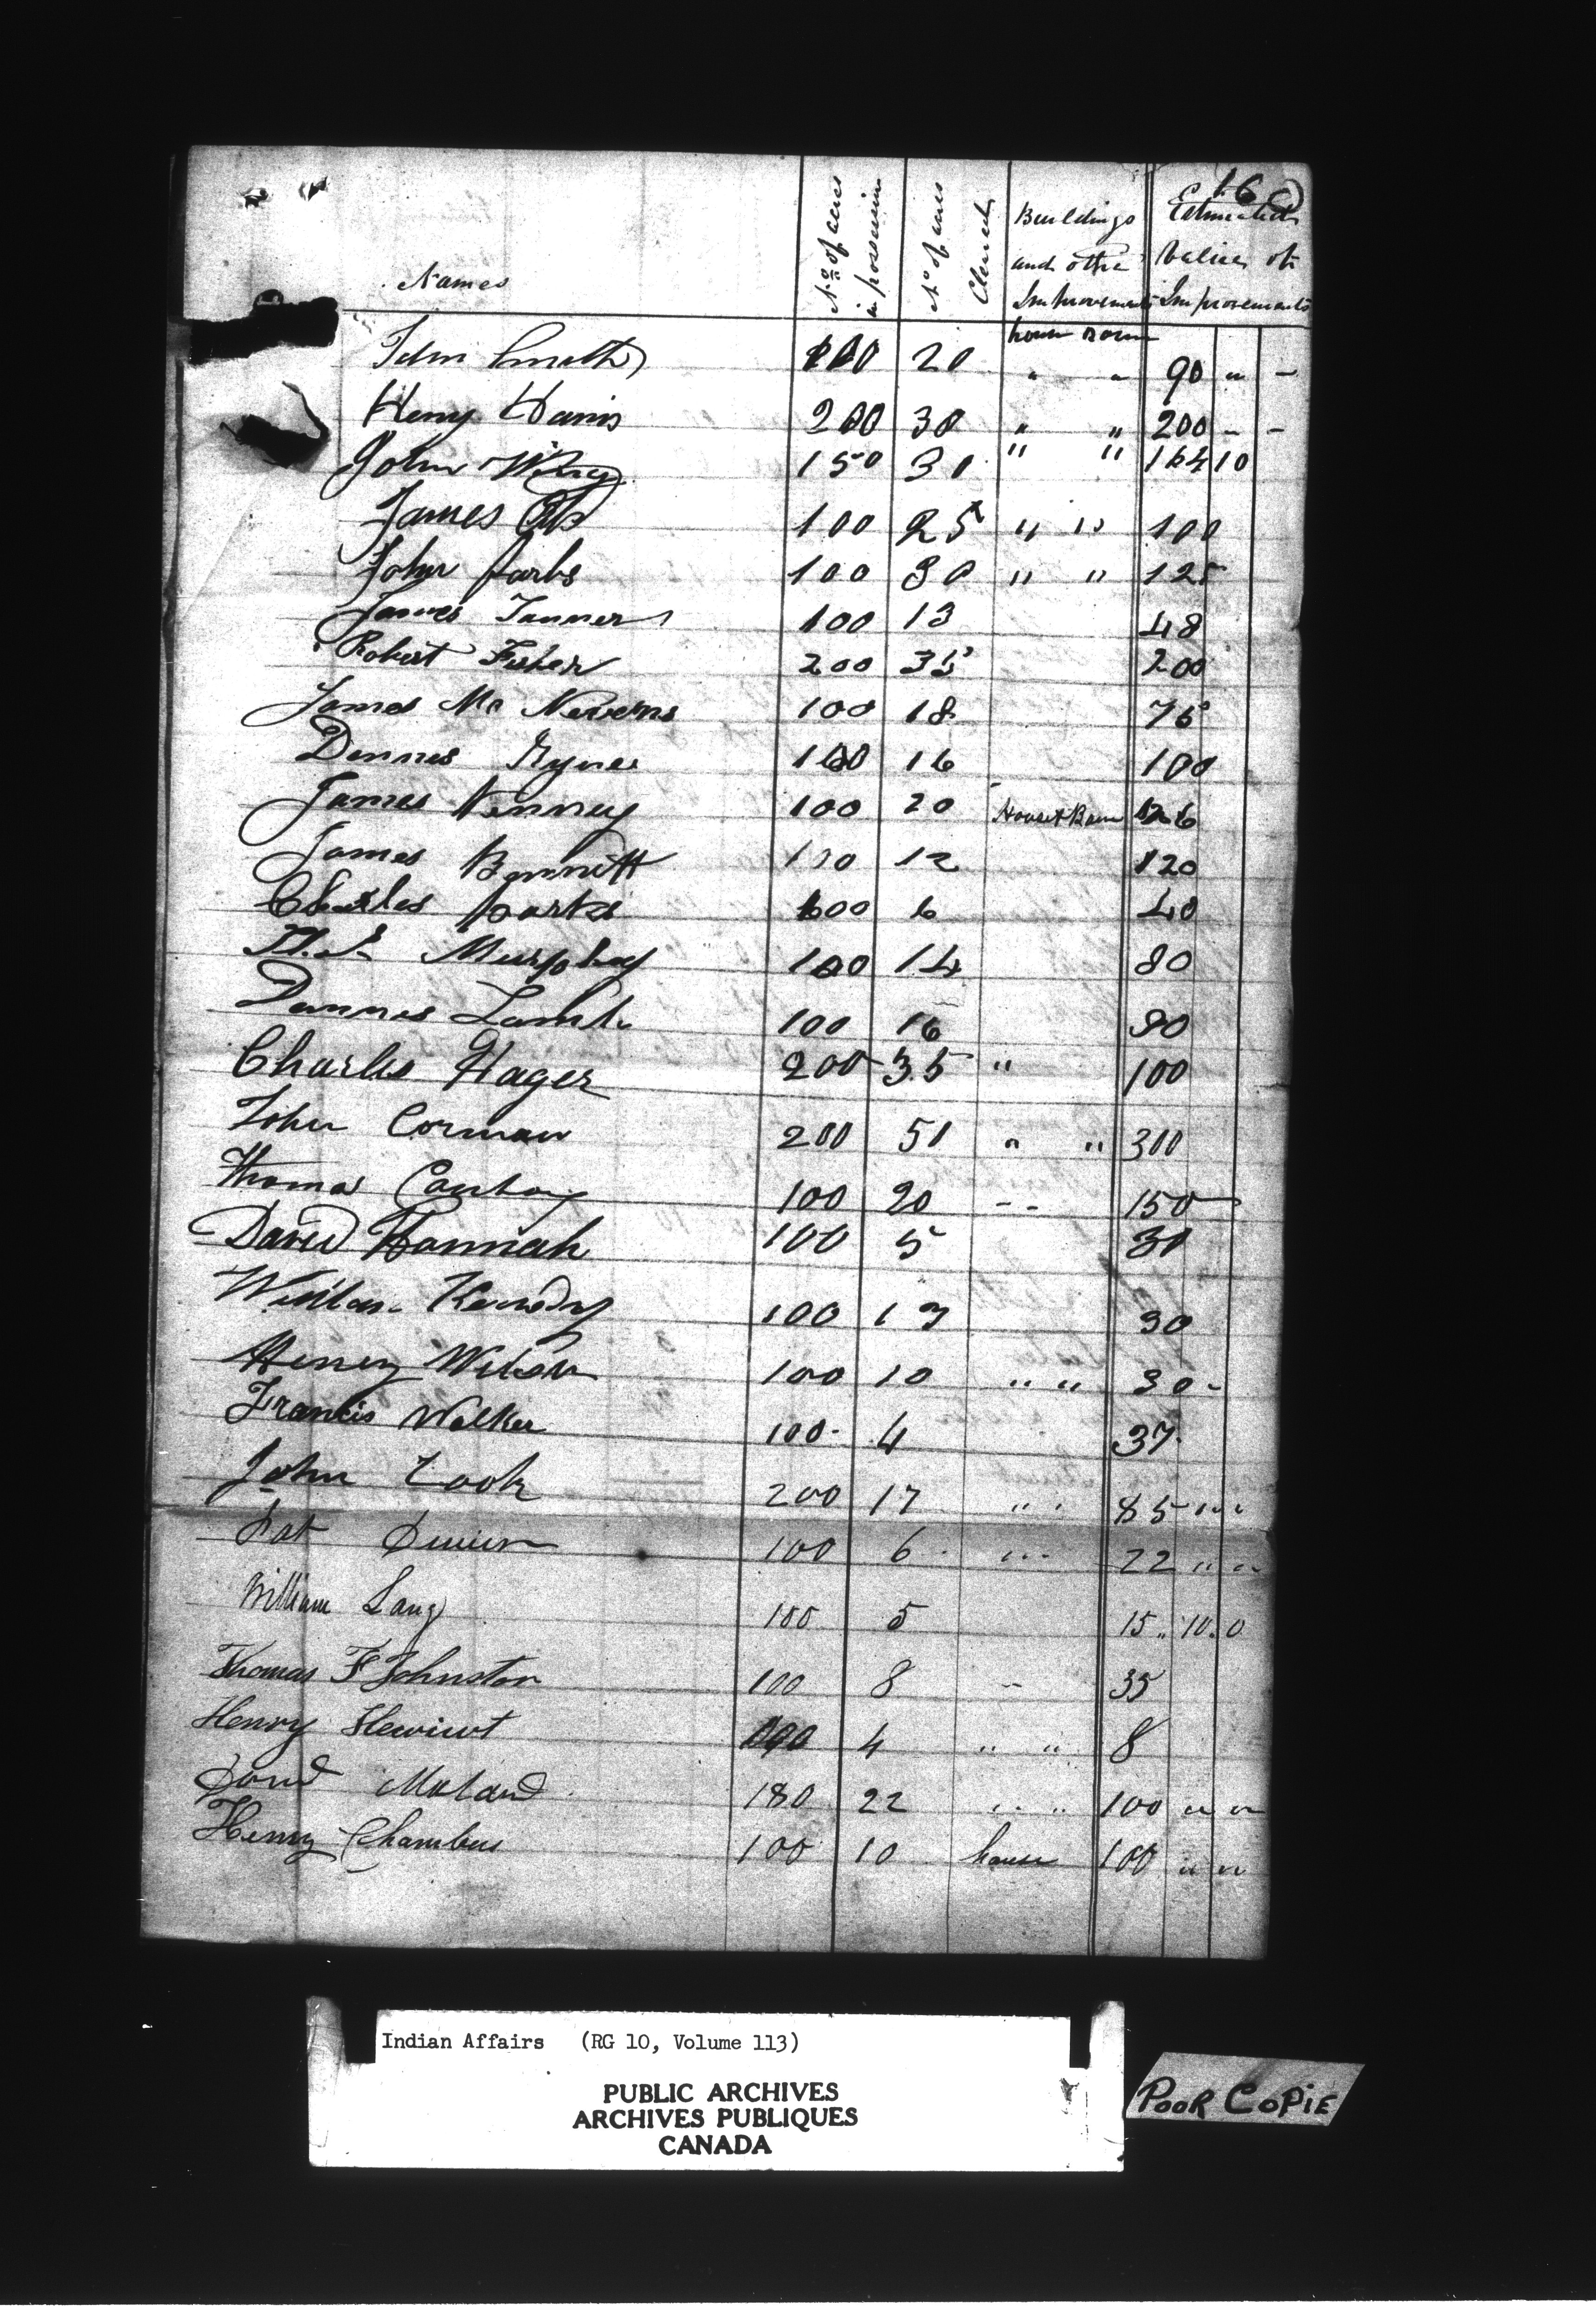 Names
No of acres in possession
No of acres Cleared
Buildings and other Improvements
Estimated Value of Improvements
house Barn
John Smith 100 20 " " 90 " -
Henry Harris 200 30 " " 200 - -
John 150 30 " " 164 10
James 100 25 " " 100
John Parks 100 30 " " 125
James Tanner 100 13 48
Robert Fisher 200 35 200
James Mc Nevens 100 18 75
Dennes 100 16 100
James Kenney 100 20 House & Barn
James Bennett 100 12 120
Charles parks 100 6 40
Murphey 100 14 80
Dannes Lamb 100 16
Charles Hager 200 35 " 100
John Corman 200 50 " " 300
Thomas Conboy 100 20 -- 150
David Hannah 100 5 30
William Kennedy 100 13 30
Henery Wilson 100 10 " " 30-
Francis Walker 100 4 37
John Cook 200 17 " " 85 " "
Pat 100 6 " " 22 " "
William Lang 100 5 15 .. 10. 0
Thomas F Johnston 100 8 " 35
Henry 100 4 " " 8
David 180 22 " " 100 " "
Henry Chambers 100 10 house 100 " "
Indian Affairs (RG 10, Volume 113)
PUBLIC ARCHIVES
ARCHIVES PUBLIQUES
CANADA
POOR COPIE